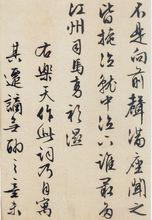 不是向前聲滿座聞之
皆掩泣就中泣下誰最多
江州司馬青衫濕
右樂天作此詞乃自寓
其遷謫無聊之意耳